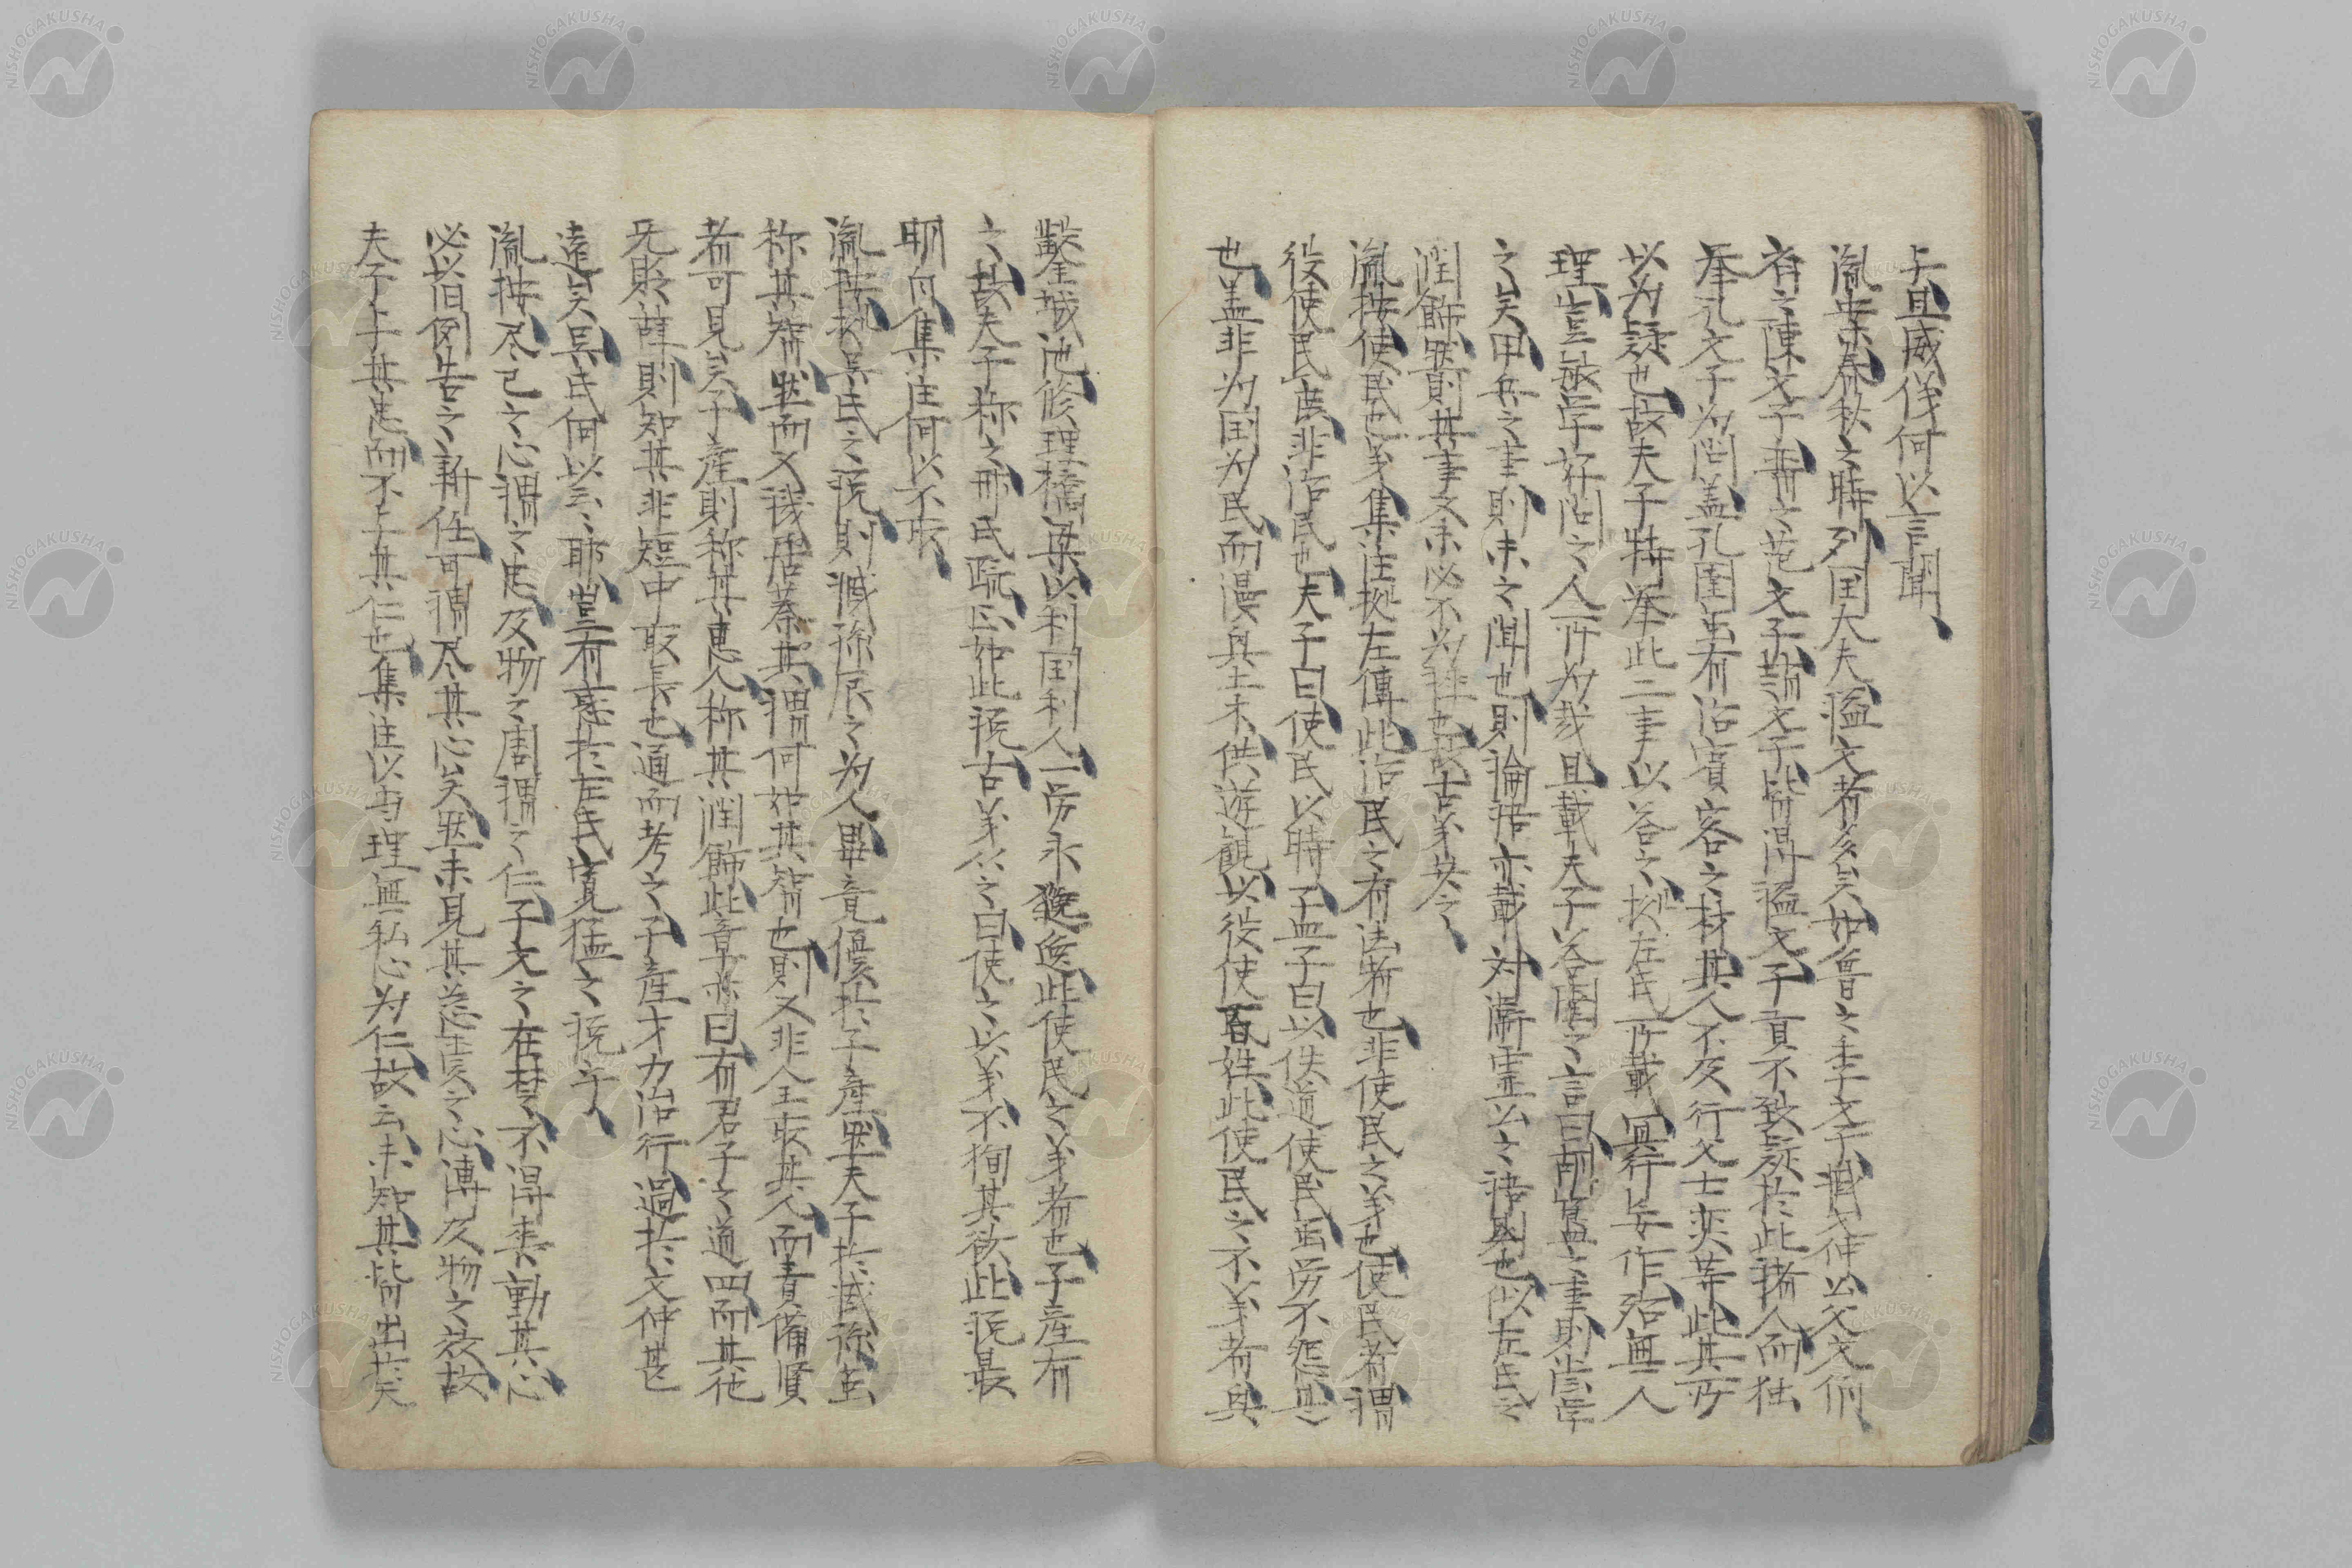 与且威侭何以言聞
胤按春秋之時列国大夫謚文者多矣如魯之季文子臧文仲公父文伯
有之陳文子晋之范文子趙文子皆得謚文子貢不致疑於此諸人而独
挙孔文子为问盖孔圉虽有治賓客之材其人不及行父士燮等此其所
以为疑也故夫子特举此二事以答之拠左氏所載圉行妄作殆無一人
理豈敏学好问之人所为哉且載夫子答圉之言曰胡簋之事則甞学
之矣甲兵之事則未之聞也則論語亦載対衛霊公之語則也似左氏之
潤飾然則其事又未必不为誣也故古义若是
胤按使民也义集注拠左傳此治民之有法者也非使民之义也使民者謂
役使民庶非治民也夫子曰使民以時孟子曰以佚道使民虽労不怨是
也盖非为国为民而漫興土木供遊観以役使百姓此使民之不义者與
鑿城池修理橋梁以利国利人一労永逸此使民之义者也子産有
之故夫子称之邢氏疏亦如此説古义从之曰使之以义不狥其欲此説最
明白集注何以不取
胤按如吳氏之説則臧孫辰之为人畢竟優於子産然夫子於臧孫虽
称其智然而又譏居蔡其謂何如其智也則又非全取其人而責備賢
者可見矣子産則称其惠人称其潤飾此章亦曰有君子之道四而其他
无貶辞則知其非短中取長也通而考之子産才力治行過於文仲甚
遠矣吳氏何以云耶豈有惑於左氏寛猛之説乎
胤按尽己之心謂之忠及物之周謂之仁子文之在楚不得喪動其心
必以旧例告之新任可謂尽其心矣然未見其慈愛之心溥及物之效故
夫子与其忠而不与其仁也集注以当理無私心为仁故云未知其皆出於天